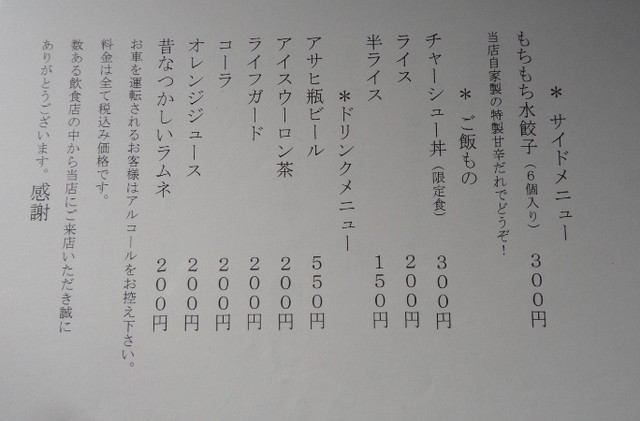 ＊ サイドメニュー
もちもち水餃子（６個入り） ３００円
当店自家製の特製甘辛だれでどうぞ！
＊ ご飯もの
チャーシュー丼（限定食） ３００円
ライス ２００円
半ライス １５０円
＊ドリンクメニュー
アサヒ瓶ビール ５５０円
アイスウーロン茶 ２００円
ライフガード ２００円
コーラ ２００円
オレンジジュース ２００円
昔なつかしいラムネ ２００円
お車を運転されるお客様はアルコールをお控え下さい。
料金は全て税込み価格です。
数ある飲食店の中から当店にご来店いただき誠に
ありがとうございます。感謝